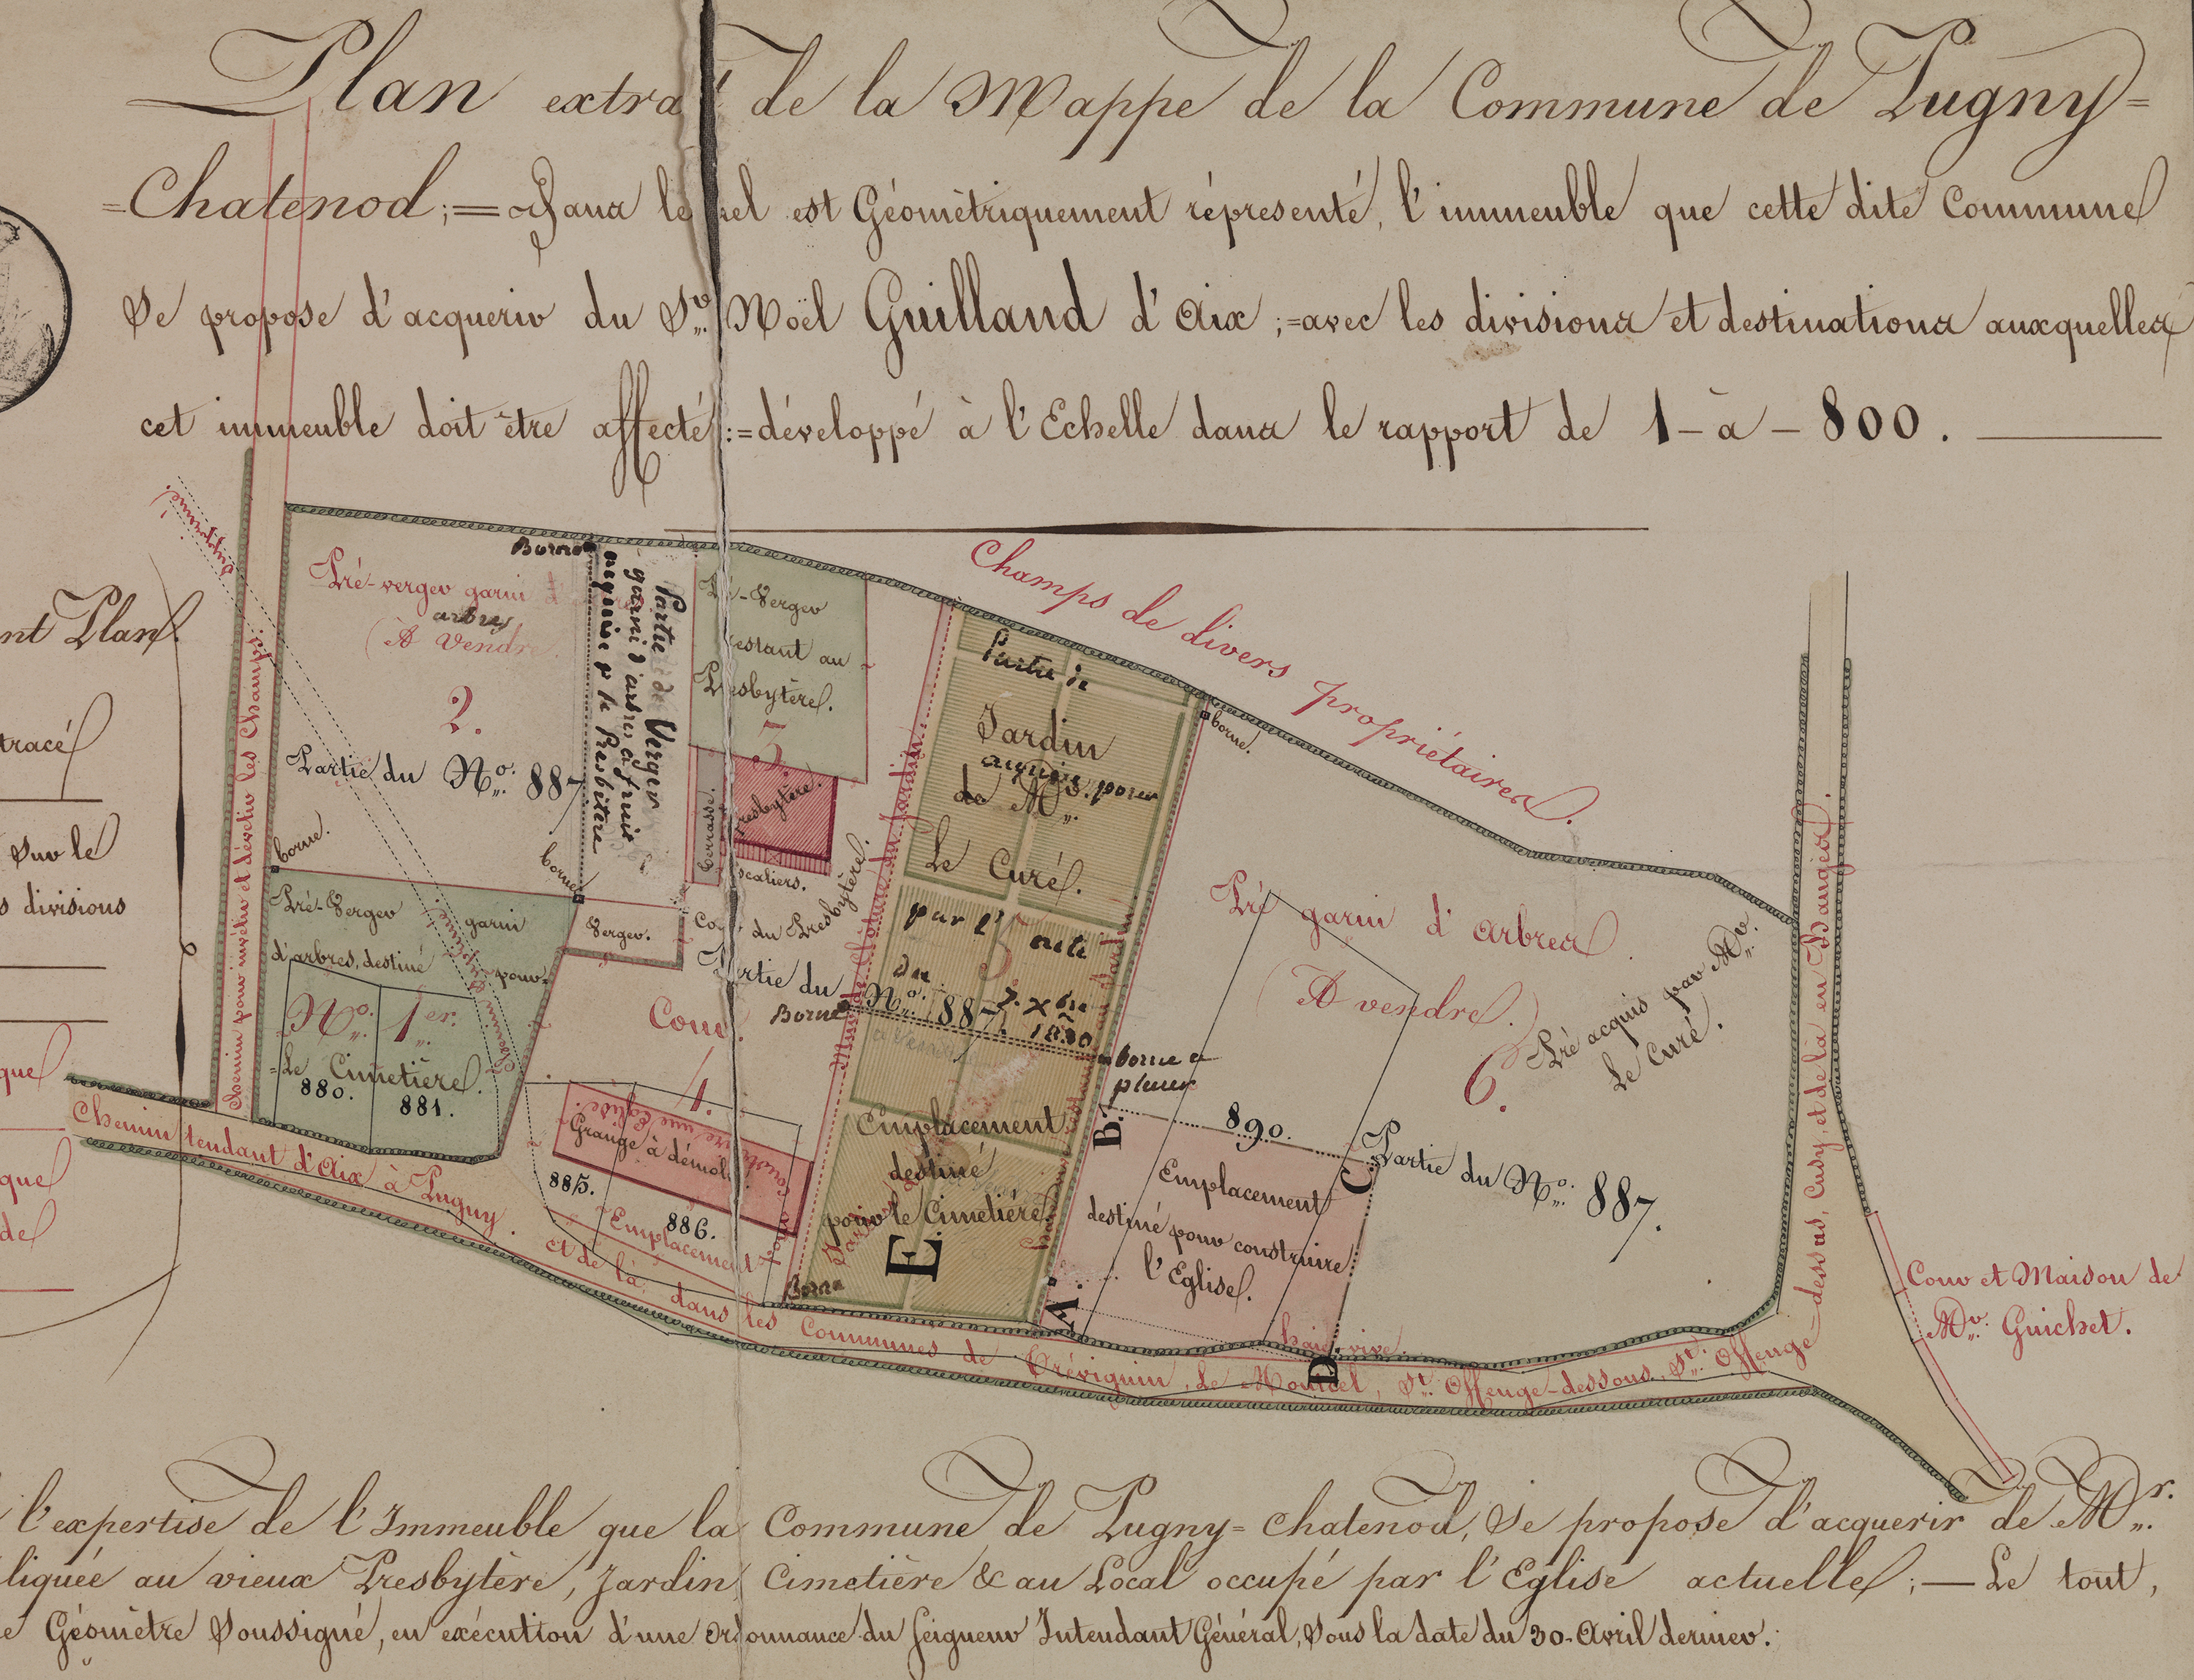 Plan extrait de la Mappe de la Commune de Pugny=
=Chatenod;= Dans lequel est Géométriquement réprésenté, l'immeuble que cette dite Commune
Se propose d'acquerir du Sr. Noël Guilland d'Aix ;=avec les divisions et destinations auxquelles
cet immeuble doit être affecté:=développé à l'Echelle dans le rapport de 1-à-800.
nt Plan.
tracé
Sur le
s divisions
que
que
de
Champs de divers propriétaires.
Borne
Pré-verger garni d'
arbres
(A Vendre
2.
Partie du No. 887
Partie de Verger
garni d'arbres à fruit
acquise p le Presbitère
Pré-Verger
restant au
Presbytère.
3.
Terrasse.
Presbytère.
Escaliers.
Cour du Presbytère.
Partie du
No. 887.
Mur de Clôture du Jardin
Partie de
Jardin
acquis pour
de Mr.
Le Curé.
par l'acte
du
7. Xbre
1830
5
borne.
Borne
borne a
placer
borne.
borne
Verger.
Cour.
4.
Pré-Verger garni
d'arbres, destiné pour
No. 1er.
=Le Cimetière.
880.
881.
Chemin pour invêtir et dévêtir les Champs.
Grange à démolir
885.
886.
Emplacement pour
construire une Eglise.
Emplacement
destiné
pour le Cimetière
E.
Borne
Pré garni d'arbres
(A vendre.)
6.
Pré acquis par Mr.
Le Curé.
890.
Partie du No. 887.
Emplacement
destiné pour construire
l'Eglise.
A.
B.
C.
D.
haie vive.
Chemin tendant d'Aix à Pugny.
et de là dans les Communes de Trévignin, Le Montcel, St. Offenge-dessous, St. Offenge-dessus, Cusy, et de là en Bauges.
Cour et Maison de
Mr. Guichet.
l'expertise de l'Immeuble que la Commune de Pugny=Chatenod, Se propose d'acquerir de Mr.
liquée au vieux Presbytère, Jardin, Cimetière & au Local occupé par l'Eglise actuelle;—Le tout,
e Géomètre Soussigné, en exécution d'une ordonnance du Seigneur Intendant Général, Sous la date du 30-Avril dernier.